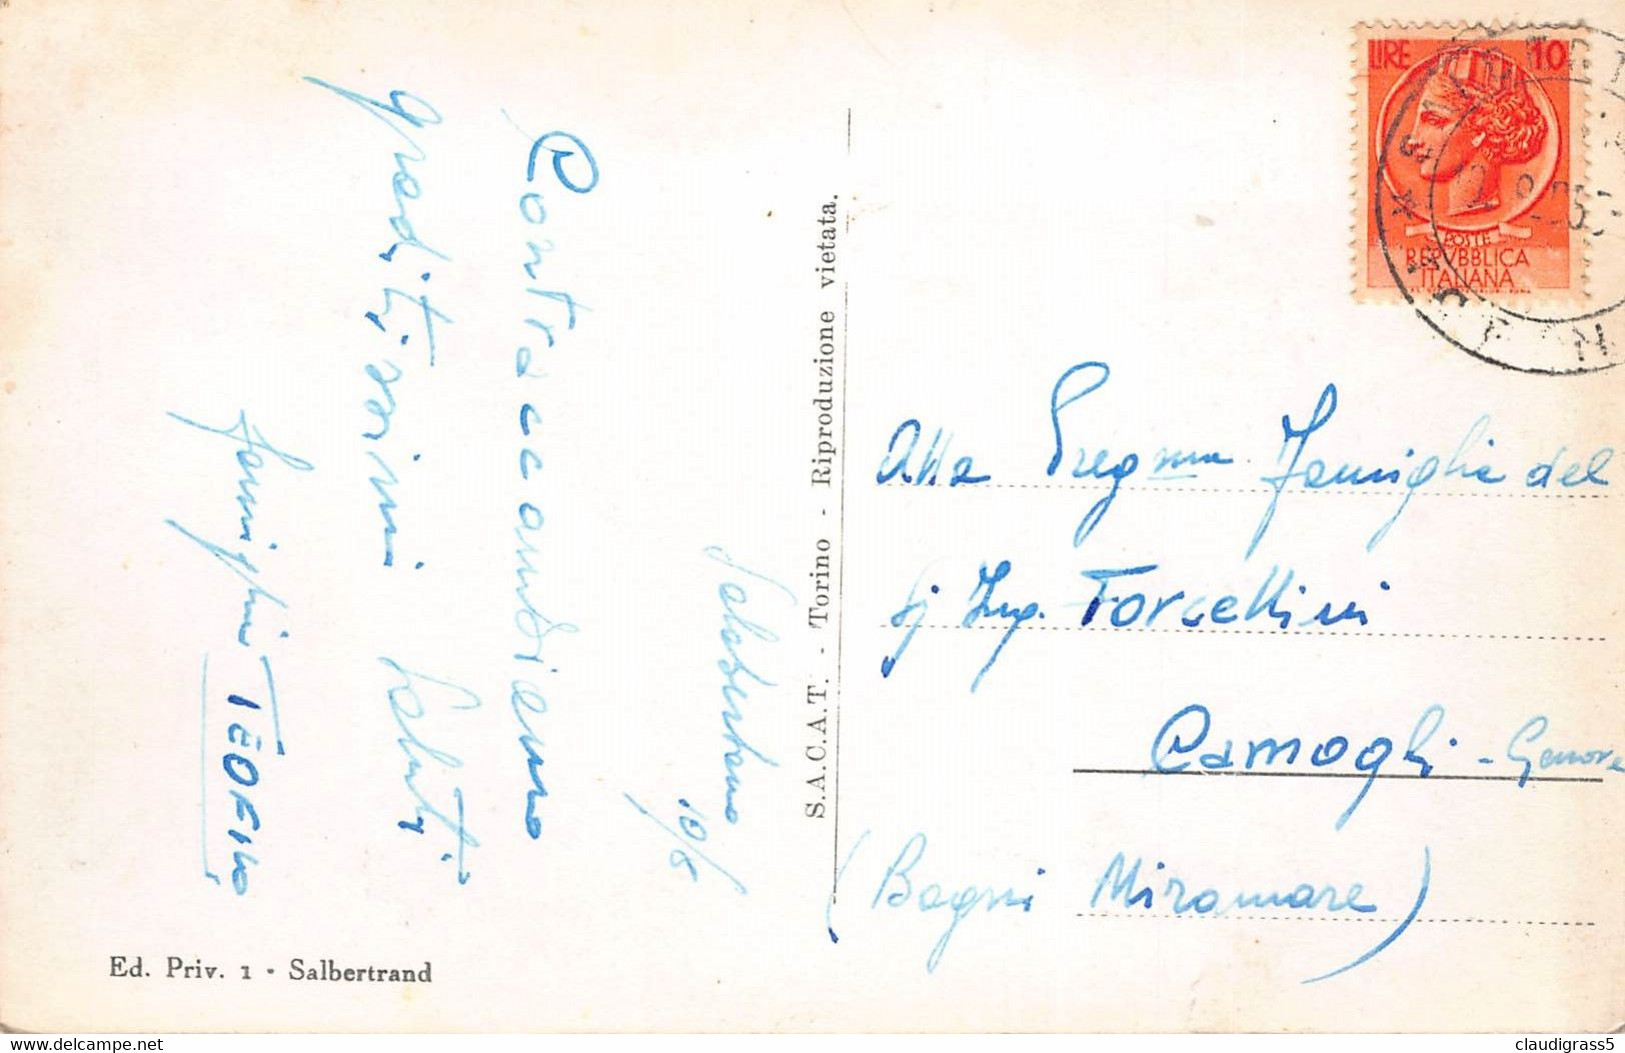 Salabertano
10/8
Contraccambiamo
graditissimi saluti
Famiglia TEOFILO
S.A.C.A.T. - Torino - Riproduzione vietata.
LIRE 10
POSTE
REPVBBLICA
ITALIANA
Alla Pregma Famiglia del
Sj Ing. Forcellini
Camogli - Genova
(Bagni Miramare)
Ed. Priv. 1 - Salbertrand
www.delcampe.net
claudigrass5